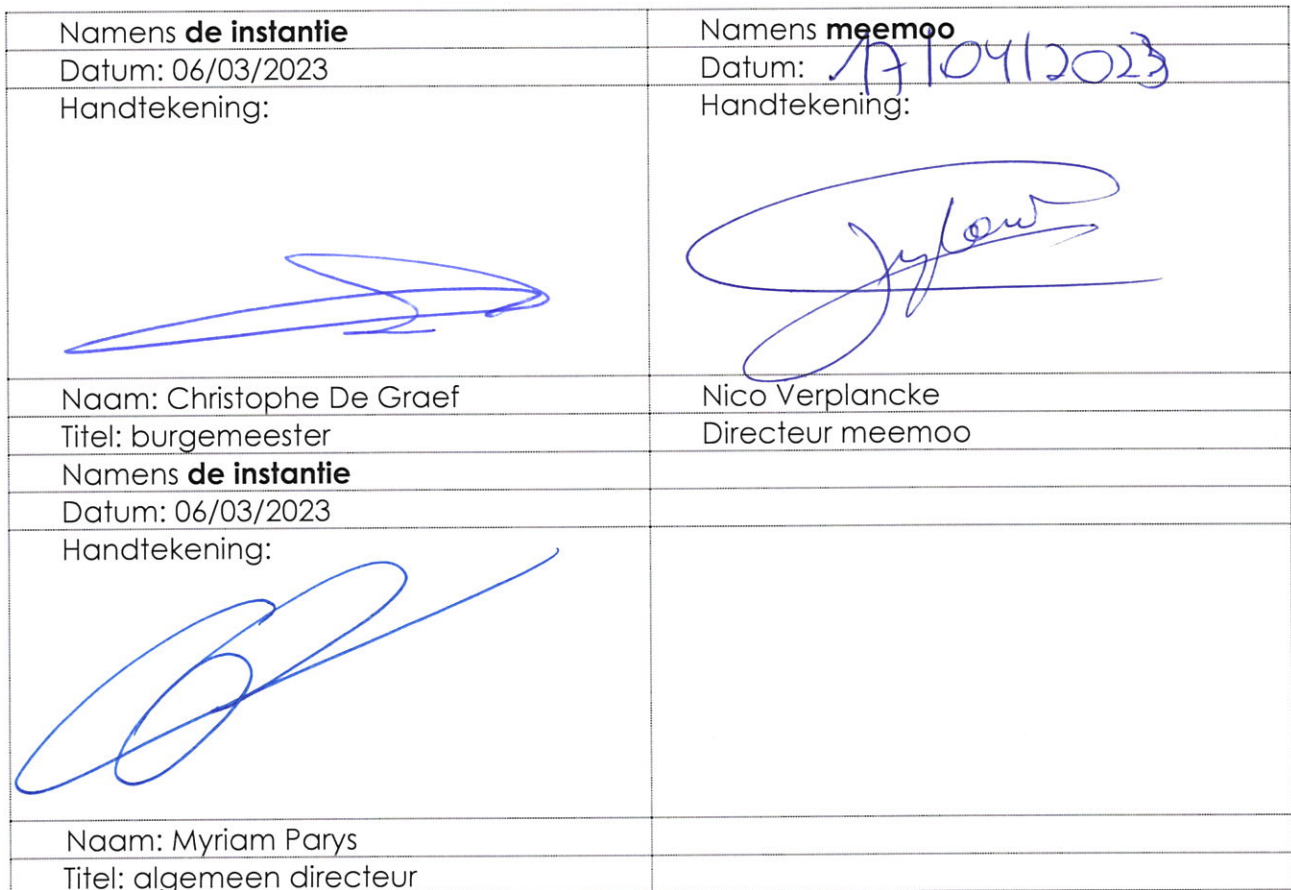 Namens de instantie
Namens meemoo
Datum: 06/03/2023
Datum: 17/04/2023
Handtekening:
Handtekening:
Naam: Christophe De Graef
Nico Verplancke
Titel: burgemeester
Directeur meemoo
Namens de instantie
Datum: 06/03/2023
Handtekening:
Naam: Myriam Parys
Titel: algemeen directeur